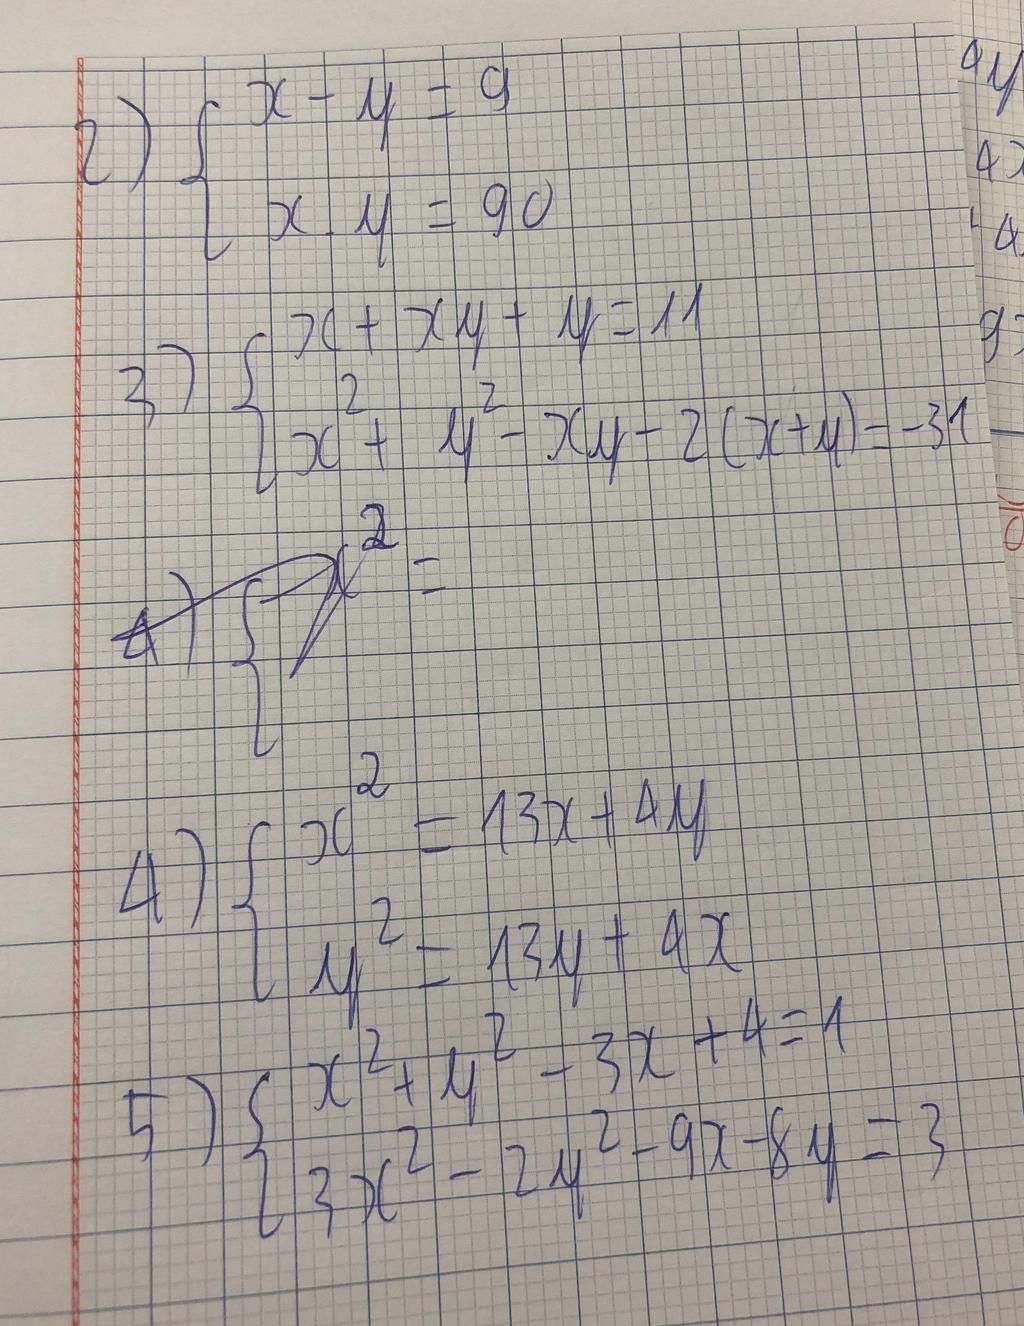 2) { x - y = 9
x . y = 90
3) { x + xy + y = 11
x² + y² - xy - 2(x+y) = -31
4) { x² =
4) { x² = 13x + 4y
y² = 13y + 4x
5) { x² + y² - 3x + 4 = 1
3x² - 2y² - 9x - 8y = 3
4y